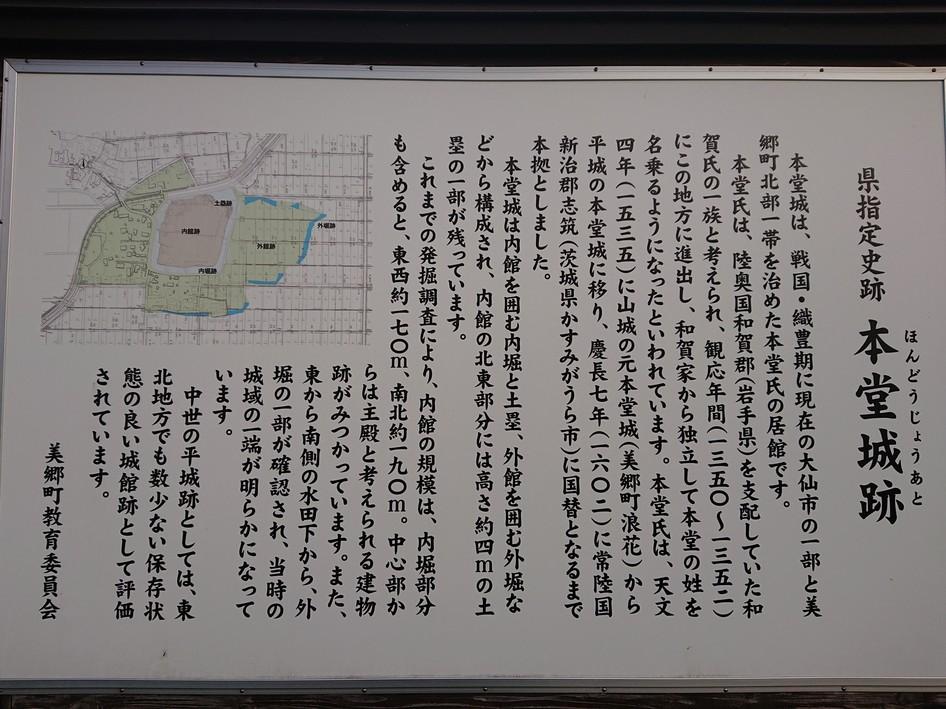 県指定史跡 本堂城跡
ほんどうじょうあと
本堂城は、戦国・織豊期に現在の大仙市の一部と美
郷町北部一帯を治めた本堂氏の居館です。
本堂氏は、陸奥国和賀郡(岩手県)を支配していた和
賀氏の一族と考えられ、観応年間(一三五〇～一三五二)
にこの地方に進出し、和賀家から独立して本堂の姓を
名乗るようになったといわれています。本堂氏は、天文
四年(一五三五)に山城の元本堂城(美郷町浪花)から
平城の本堂城に移り、慶長七年(一六〇二)に常陸国
新治郡志筑(茨城県かすみがうら市)に国替となるまで
本拠としました。
本堂城は内館を囲む内堀と土塁、外館を囲む外堀な
どから構成され、内館の北東部分には高さ約四mの土
塁の一部が残っています。
これまでの発掘調査により、内館の規模は、内堀部分
も含めると、東西約一七〇m、南北約一九〇m。中心部か
らは主殿と考えられる建物
跡がみつかっています。また、
東から南側の水田下から、外
堀の一部が確認され、当時の
城域の一端が明らかになって
います。
中世の平城跡としては、東
北地方でも数少ない保存状
態の良い城館跡として評価
されています。
美郷町教育委員会
土塁跡
外堀跡
内館跡
外館跡
内堀跡